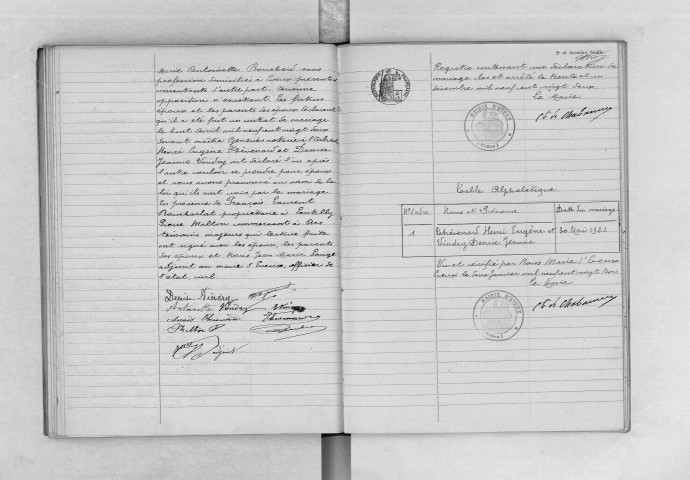 Marie Antoinette Bouchard sans
profession domiciliés à Eveux présents et
consentants d'autre part. Aucune
opposition n'existant. Les futurs
époux et les parents des époux déclarent
qu'il a été fait un contrat de mariage
le huit avril mil neuf cent vingt deux
devant maître notaire à l'Arbresle
Henri Eugène Thévenard et Denise
Jeanne Vindry ont déclaré l'un après
l'autre vouloir se prendre pour époux
et nous avons prononcé au nom de la
loi qu'ils sont unis par le mariage
En présence de François Laurent
propriétaire à
Pierre Millon à
témoins majeurs qui lecture faite
ont signé avec les époux, les parents
des époux et Nous Jean Marie
adjoint au maire d'Eveux, officier de
l'état civil
Denise Vindry
Antoinette Vindry
Millon P
9e et dernier feuillet
Registre contenant une déclaration de
mariage clos et arrêté le trente et un
décembre mil neuf cent vingt deux
Le Maire
MAIRIE D'EVEUX
(Rhône)
Table Alphabétique
Nos d'ordre
Noms et Prénoms
Date du mariage
1
Thévenard Henri Eugène et
Vindry Denise Jeanne
30 Mai 1922
Vu et vérifié par Nous Maire d'Eveux
Eveux le Janvier mil neuf cent vingt trois
Le Maire
MAIRIE D'EVEUX
(Rhône)